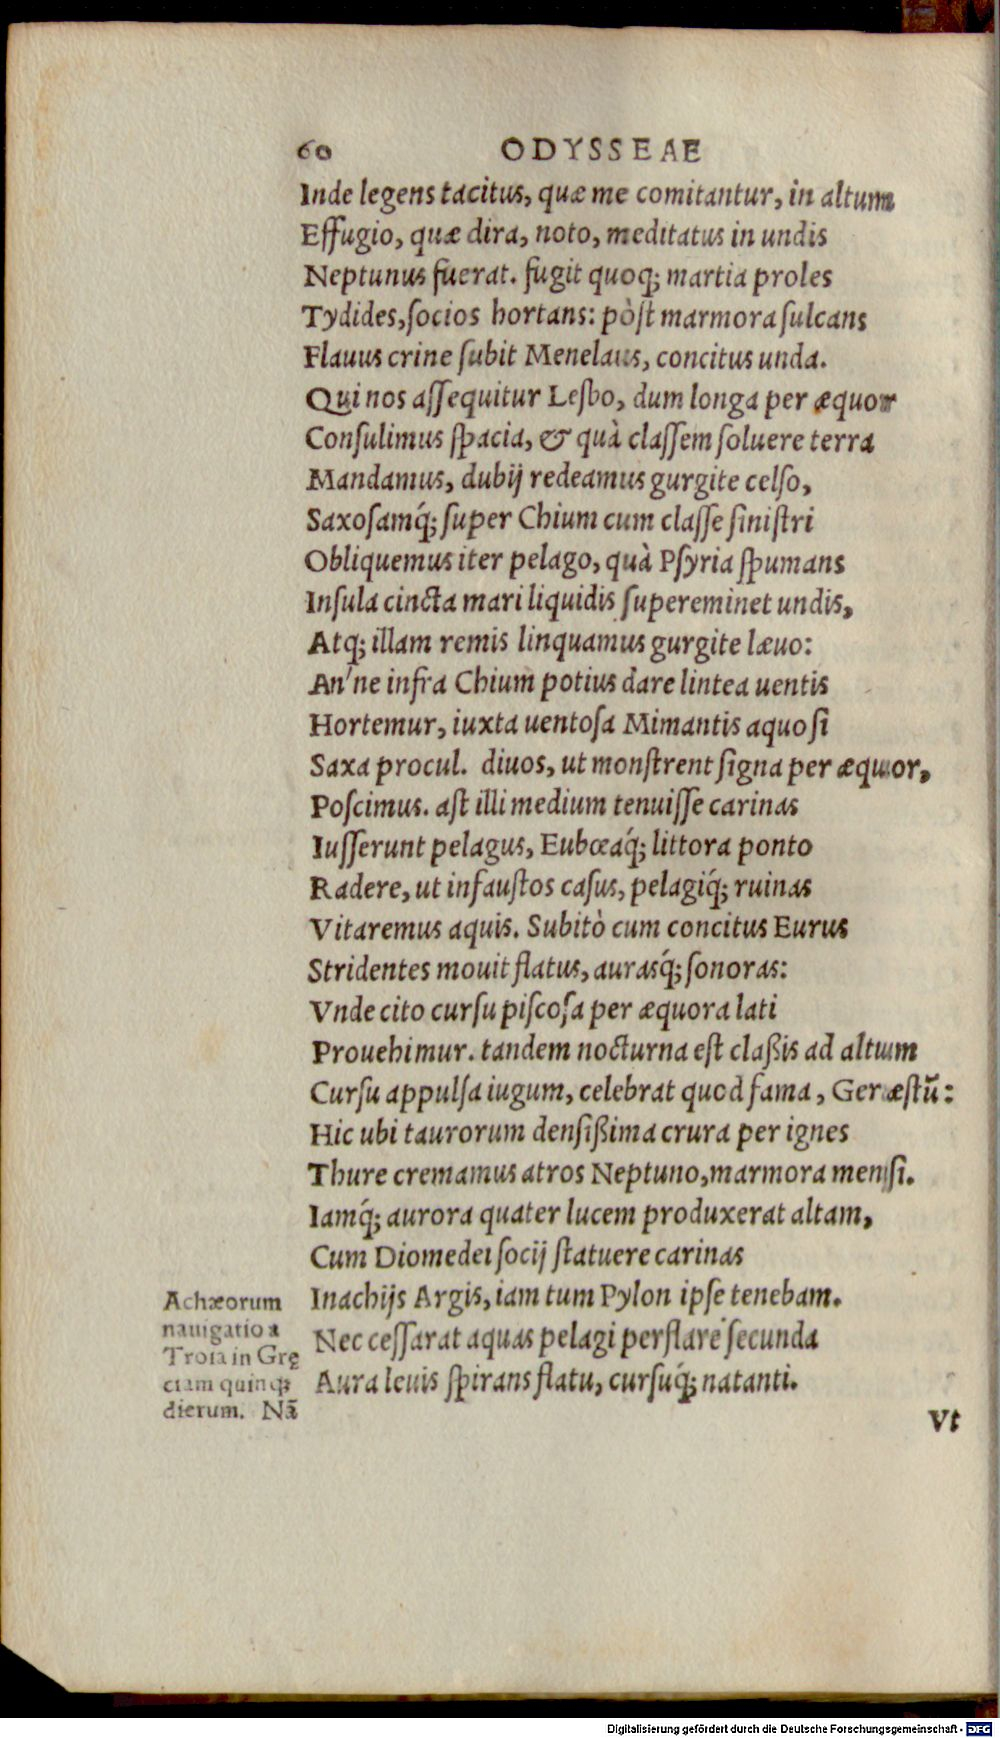 60 ODYSSEAE
Inde legens tacitus, quæ me comitantur, in altum
Effugio, quæ dira, noto, meditatus in undis
Neptunus fuerat. fugit quoq; martia proles
Tydides, ſocios hortans: pòſt marmora ſulcans
Flauus crine ſubit Menelaus, concitus unda.
Qui nos aſſequitur Leſbo, dum longa per æquor
Conſulimus ſpacia, & quà claſſem ſoluere terra
Mandamus, dubij redeamus gurgite celſo,
Saxoſamq́; ſuper Chium cum claſſe ſiniſtri
Obliquemus iter pelago, quà Pſyria ſpumans
Inſula cincta mari liquidis ſupereminet undis,
Atq; illam remis linquamus gurgite læuo:
An'ne infra Chium potius dare lintea uentis
Hortemur, iuxta uentoſa Mimantis aquoſi
Saxa procul. diuos, ut monſtrent ſigna per æquor,
Poſcimus. aſt illi medium tenuiſſe carinas
Iuſſerunt pelagus, Eubœaq́; littora ponto
Radere, ut infauſtos caſus, pelagiq́; ruinas
Vitaremus aquis. Subitò cum concitus Eurus
Stridentes mouit flatus, aurasq́; ſonoras:
Vnde cito curſu piſcoſa per æquora lati
Prouehimur. tandem nocturna eſt claßis ad altum
Curſu appulſa iugum, celebrat quod fama, Geræſtũ:
Hic ubi taurorum denſißima crura per ignes
Thure cremamus atros Neptuno, marmora menſi.
Iamq́; aurora quater lucem produxerat altam,
Cum Diomedei ſocij ſtatuere carinas
Inachijs Argis, iam tum Pylon ipſe tenebam.
Nec ceſſarat aquas pelagi perflare ſecunda
Aura leuis ſpirans flatu, curſuq́; natanti.
Achæorum
nauigatio a
Troia in Grę
ciam quinq;
dierum. Nã
Vt
Digitalisierung gefördert durch die Deutsche Forschungsgemeinschaft - DFG